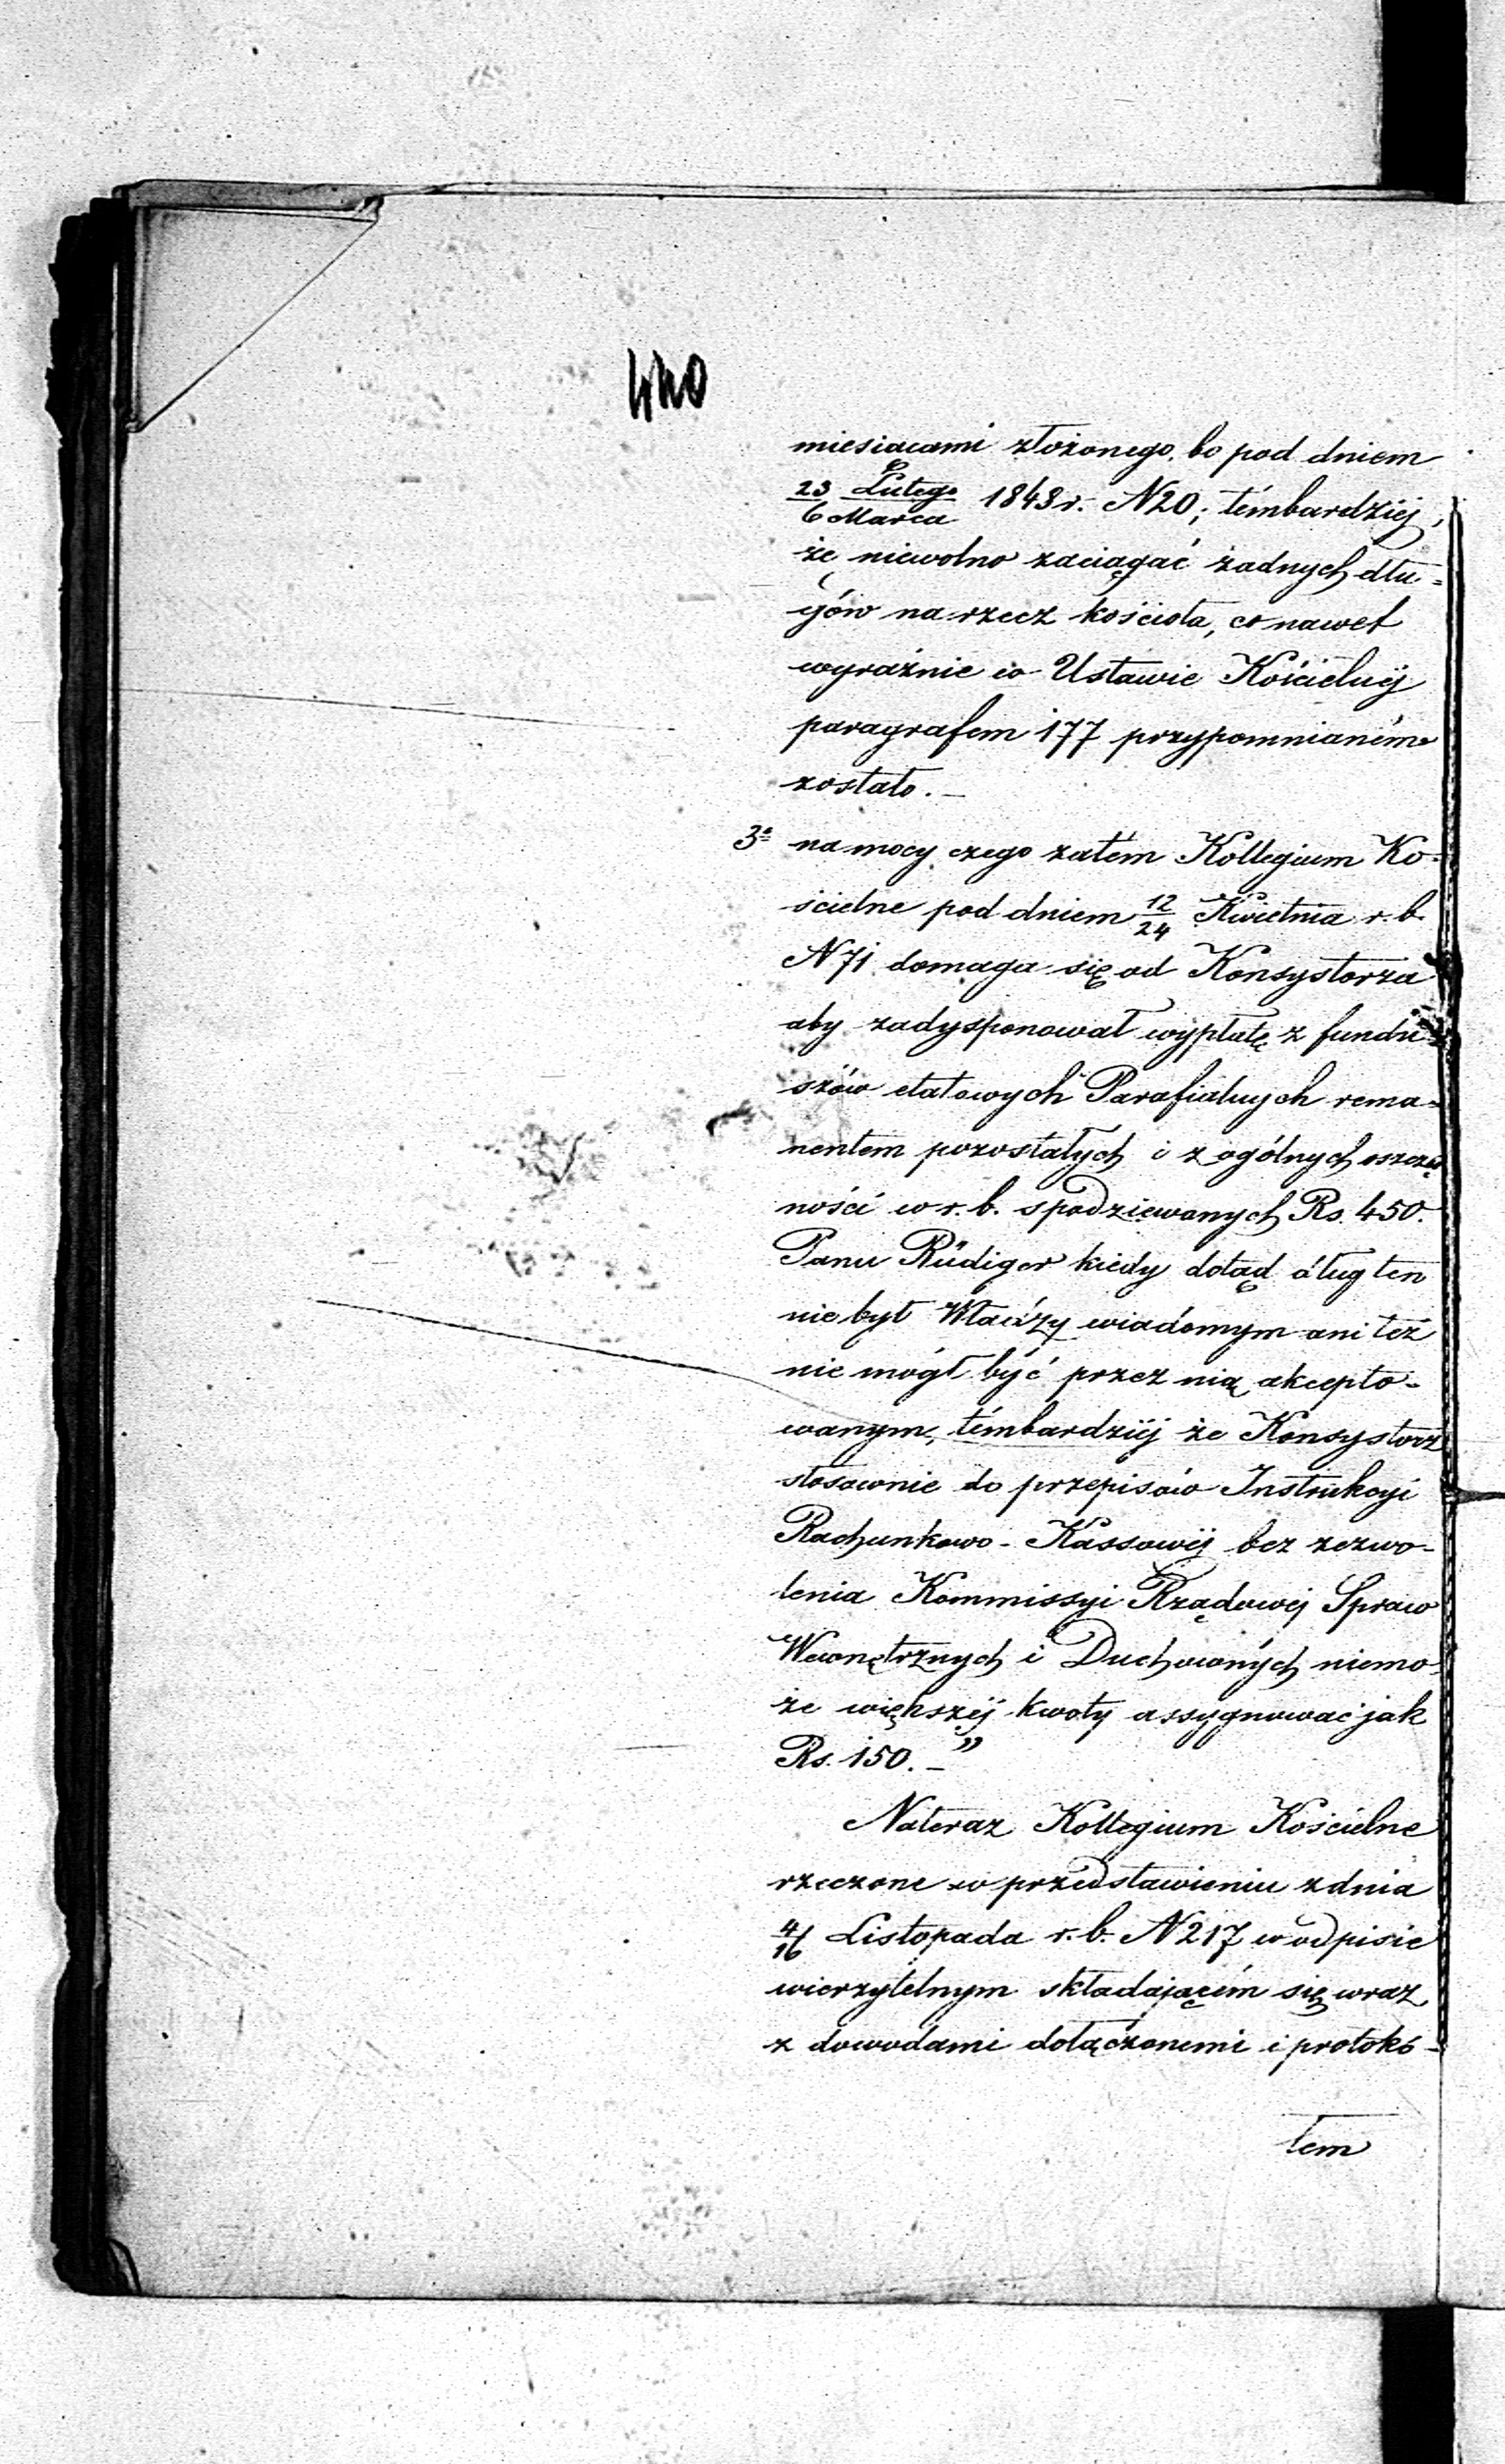 440
miesiacami złożonego, bo pod dniem
23 Lutego / 6 Marca 1843 r. N 20; témbardziéj,
że niewolno zaciągać żadnych dłu-
gów na rzecz kościoła, co nawet
wyraźnie w Ustawie Kościelnéj
paragrafem 177 przypomnianém
zostało. –
3º na mocy czego zatém Kollegium Ko-
ścielne pod dniem 12/24 Kwietnia r. b.
N 71 domaga się od Konsystorza
aby zadysponował wypłatę z fundu-
szów etatowych Parafialnych rema-
nentem pozostałych i z ogólnych oszczę
ności w r. b. spodziewanych Rs. 450.
Panu Rüdiger kiedy dotąd dług ten
nie był Władzy wiadomym ani też
nie mógł być przez nią akcepto-
wanym, témbardziéj że Konsystorz
stosownie do przepisów Instrukcyi
Rachunkowo-Kassowéj bez zezwo-
lenia Kommissyi Rządowéj Spraw
Wewnętrznych i Duchownych niemo-
że większéj kwoty assygnować jak
Rs. 150. – "
Nateraz Kollegium Kościelne
rzeczone w przedstawieniu z dnia
4/16 Listopada r. b. N 217 w odpisie
wierzytelnym składającém się wraz
z dowodami dołączonemi i protokó-
łem